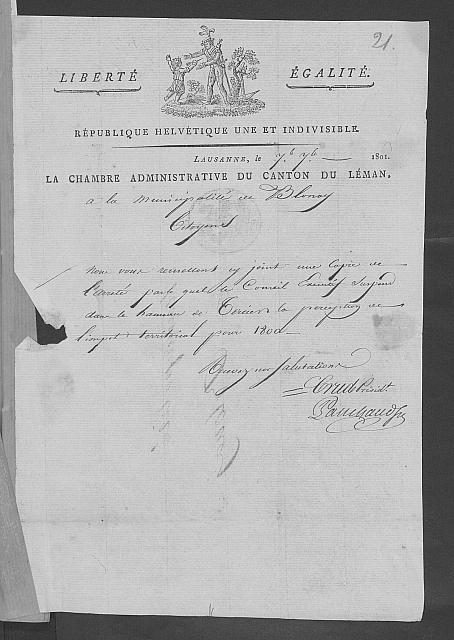 21.
LIBERTÉ
ÉGALITÉ.
RÉPUBLIQUE HELVÉTIQUE UNE ET INDIVISIBLE
LAUSANNE, le 7.b 7b 1801.
LA CHAMBRE ADMINISTRATIVE DU CANTON DU LÉMAN,
a la municipalité de Blonay
Citoyens
Nous vous remettons cy joint une Copie de
l'arreté par le quel le Conseil Executif suspend
dans le hameau de la perception de
l'impot territorial pour 1800
Recevez nos salutations
Crud Présidt.